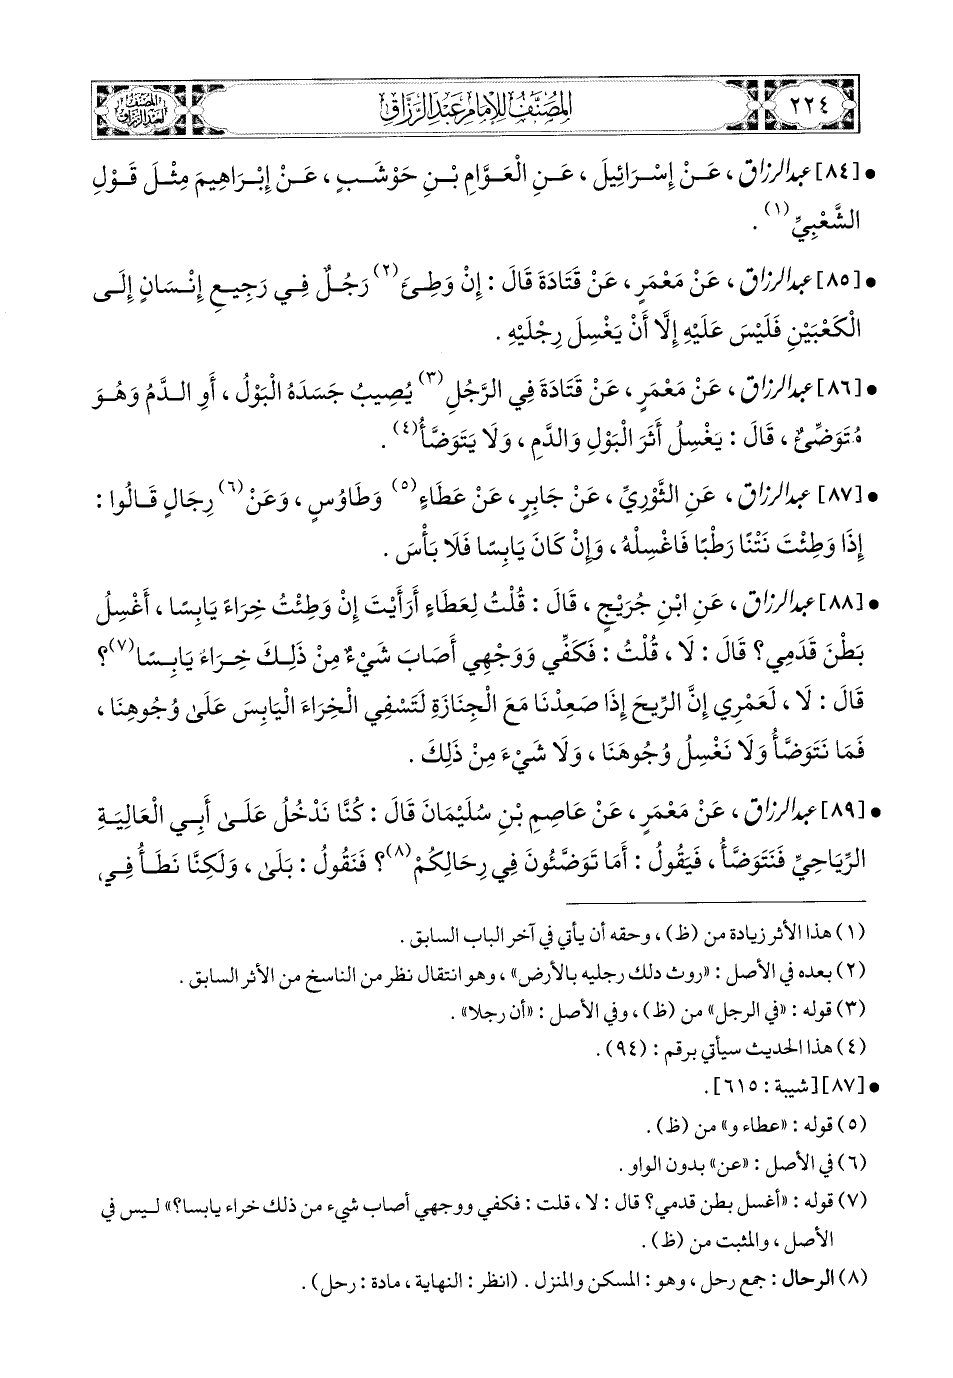 ٢٢٤
المصنف للإمام عبد الرزاق
المصنف لعبد الرزاق
• [٨٤] عبد الرزاق، عَنْ إِسْرَائِيلَ، عَنِ الْعَوَّامِ بْنِ حَوْشَبٍ، عَنْ إِبْرَاهِيمَ مِثْلَ قَوْلِ
الشَّعْبِيِّ(١).
• [٨٥] عبد الرزاق، عَنْ مَعْمَرٍ، عَنْ قَتَادَةَ قَالَ: إِنْ وَطِئَ(٢) رَجُلٌ فِي رَجِيعِ إِنْسَانٍ إِلَى
الْكَعْبَيْنِ فَلَيْسَ عَلَيْهِ إِلَّا أَنْ يَغْسِلَ رِجْلَيْهِ.
• [٨٦] عبد الرزاق، عَنْ مَعْمَرٍ، عَنْ قَتَادَةَ فِي الرَّجُلِ(٣) يُصِيبُ جَسَدَهُ الْبَوْلُ، أَوِ الدَّمُ وَهُوَ
مُتَوَضِّئٌ، قَالَ: يَغْسِلُ أَثَرَ الْبَوْلِ وَالدَّمِ، وَلَا يَتَوَضَّأُ(٤).
• [٨٧] عبد الرزاق، عَنِ الثَّوْرِيِّ، عَنْ جَابِرٍ، عَنْ عَطَاءٍ(٥) وَطَاوُسٍ، وَعَنْ(٦) رِجَالٍ قَالُوا:
إِذَا وَطِئْتَ نَتْنًا رَطْبًا فَاغْسِلْهُ، وَإِنْ كَانَ يَابِسًا فَلَا بَأْسَ.
• [٨٨] عبد الرزاق، عَنِ ابْنِ جُرَيْجٍ، قَالَ: قُلْتُ لِعَطَاءٍ أَرَأَيْتَ إِنْ وَطِئْتُ خِرَاءً يَابِسًا، أَغْسِلُ
بَطْنَ قَدَمِي؟ قَالَ: لَا، قُلْتُ: فَكَفِّي وَوَجْهِي أَصَابَ شَيْءٌ مِنْ ذَلِكَ خِرَاءً يَابِسًا(٧)؟
قَالَ: لَا، لَعَمْرِي إِنَّ الرِّيحَ إِذَا صَعِدْنَا مَعَ الْجِنَازَةِ لَتَسْفِي الْخِرَاءَ الْيَابِسَ عَلَى وُجُوهِنَا،
فَمَا نَتَوَضَّأُ وَلَا نَغْسِلُ وُجُوهَنَا، وَلَا شَيْءَ مِنْ ذَلِكَ.
• [٨٩] عبد الرزاق، عَنْ مَعْمَرٍ، عَنْ عَاصِمِ بْنِ سُلَيْمَانَ قَالَ: كُنَّا نَدْخُلُ عَلَى أَبِي الْعَالِيَةِ
الرِّيَاحِيِّ فَنَتَوَضَّأُ، فَيَقُولُ: أَمَا تَوَضَّئُونَ فِي رِحَالِكُمْ(٨)؟ فَنَقُولُ: بَلَى، وَلَكِنَّا نَطَأُ فِي
(١) هذا الأثر زيادة من (ظ)، وحقه أن يأتي في آخر الباب السابق.
(٢) بعده في الأصل: «روث دلك رجليه بالأرض»، وهو انتقال نظر من الناسخ من الأثر السابق.
(٣) قوله: «في الرجل» من (ظ)، وفي الأصل: «أن رجلا».
(٤) هذا الحديث سيأتي برقم: (٩٤).
• [٨٧] [شيبة: ٦١٥].
(٥) قوله: «عطاء و» من (ظ).
(٦) في الأصل: «عن» بدون الواو.
(٧) قوله: «أغسل بطن قدمي؟ قال: لا، قلت: فكفي ووجهي أصاب شيء من ذلك خراء يابسا؟» ليس في
الأصل، والمثبت من (ظ).
(٨) الرحال: جمع رحل، وهو: المسكن والمنزل. (انظر: النهاية، مادة: رحل).